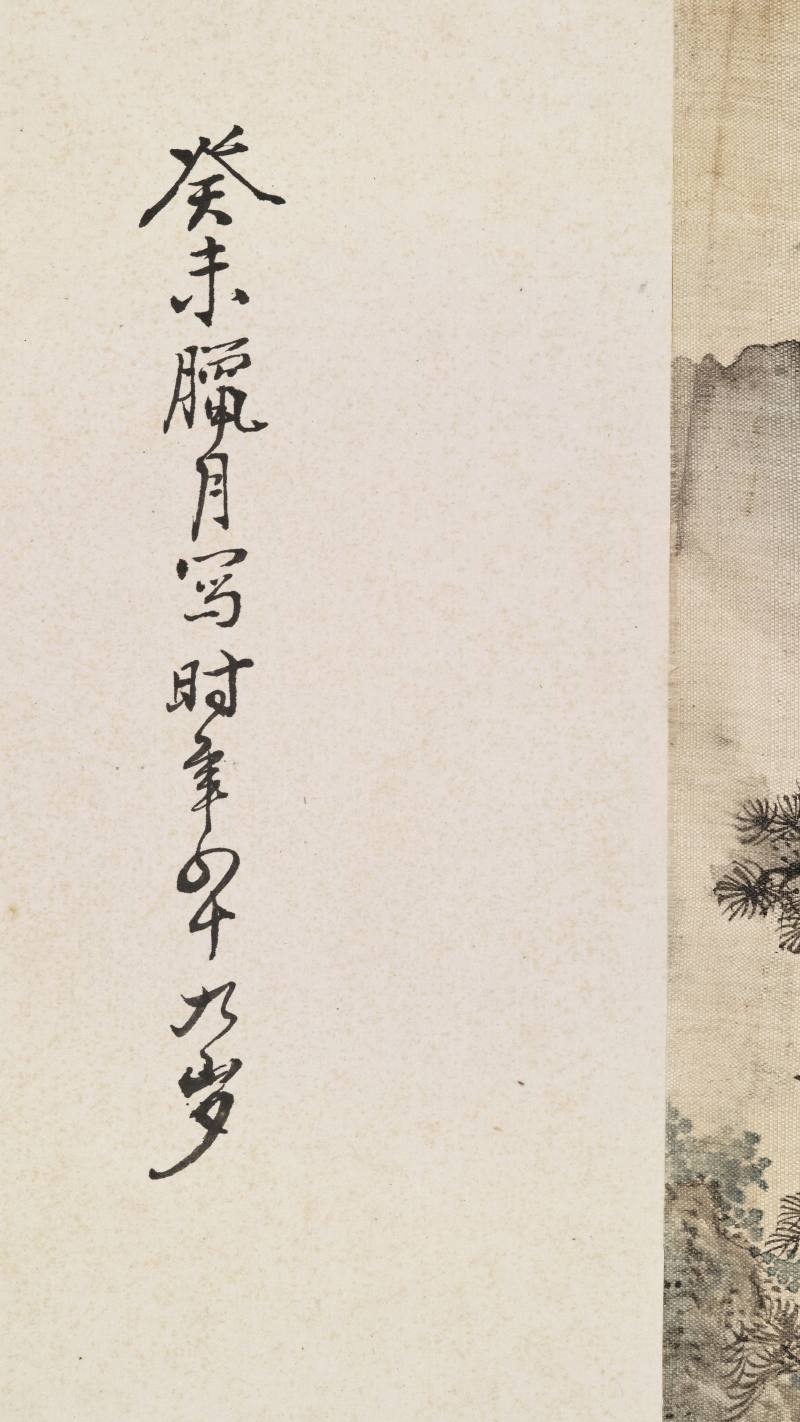 癸未臘月写时年四十九岁